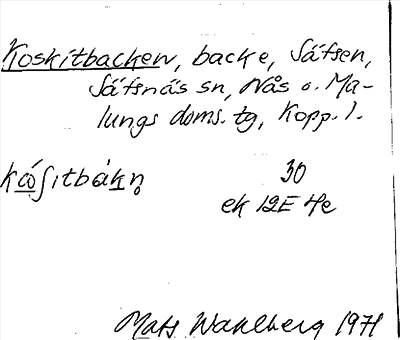 Koskitbacken, backe, Säfsen,
Säfsnäs sn, Nås o. Ma-
lungs doms. tg, Kopp. l.
kåʃitbákn̥ 30
ek 12E 4e
Mats Wahlberg 1971